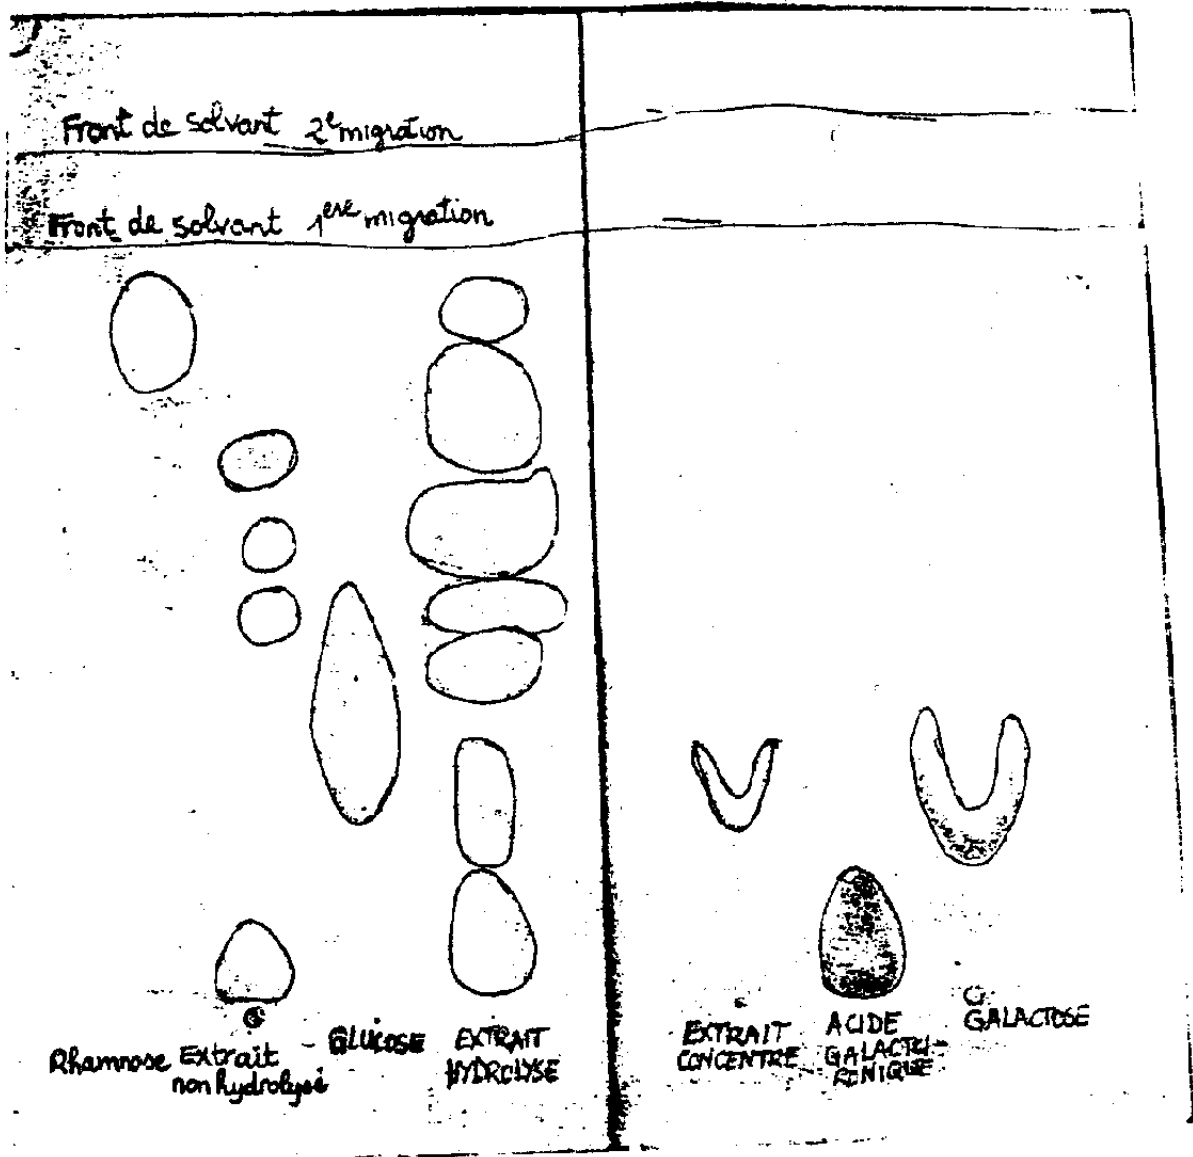 Front de solvant 2e migration
Front de solvant 1ere migration
Rhamnose
Extrait
non hydrolysé
GLUCOSE
EXTRAIT
HYDROLYSE
EXTRAIT
CONCENTRE
ACIDE
GALACTU-
RONIQUE
GALACTOSE